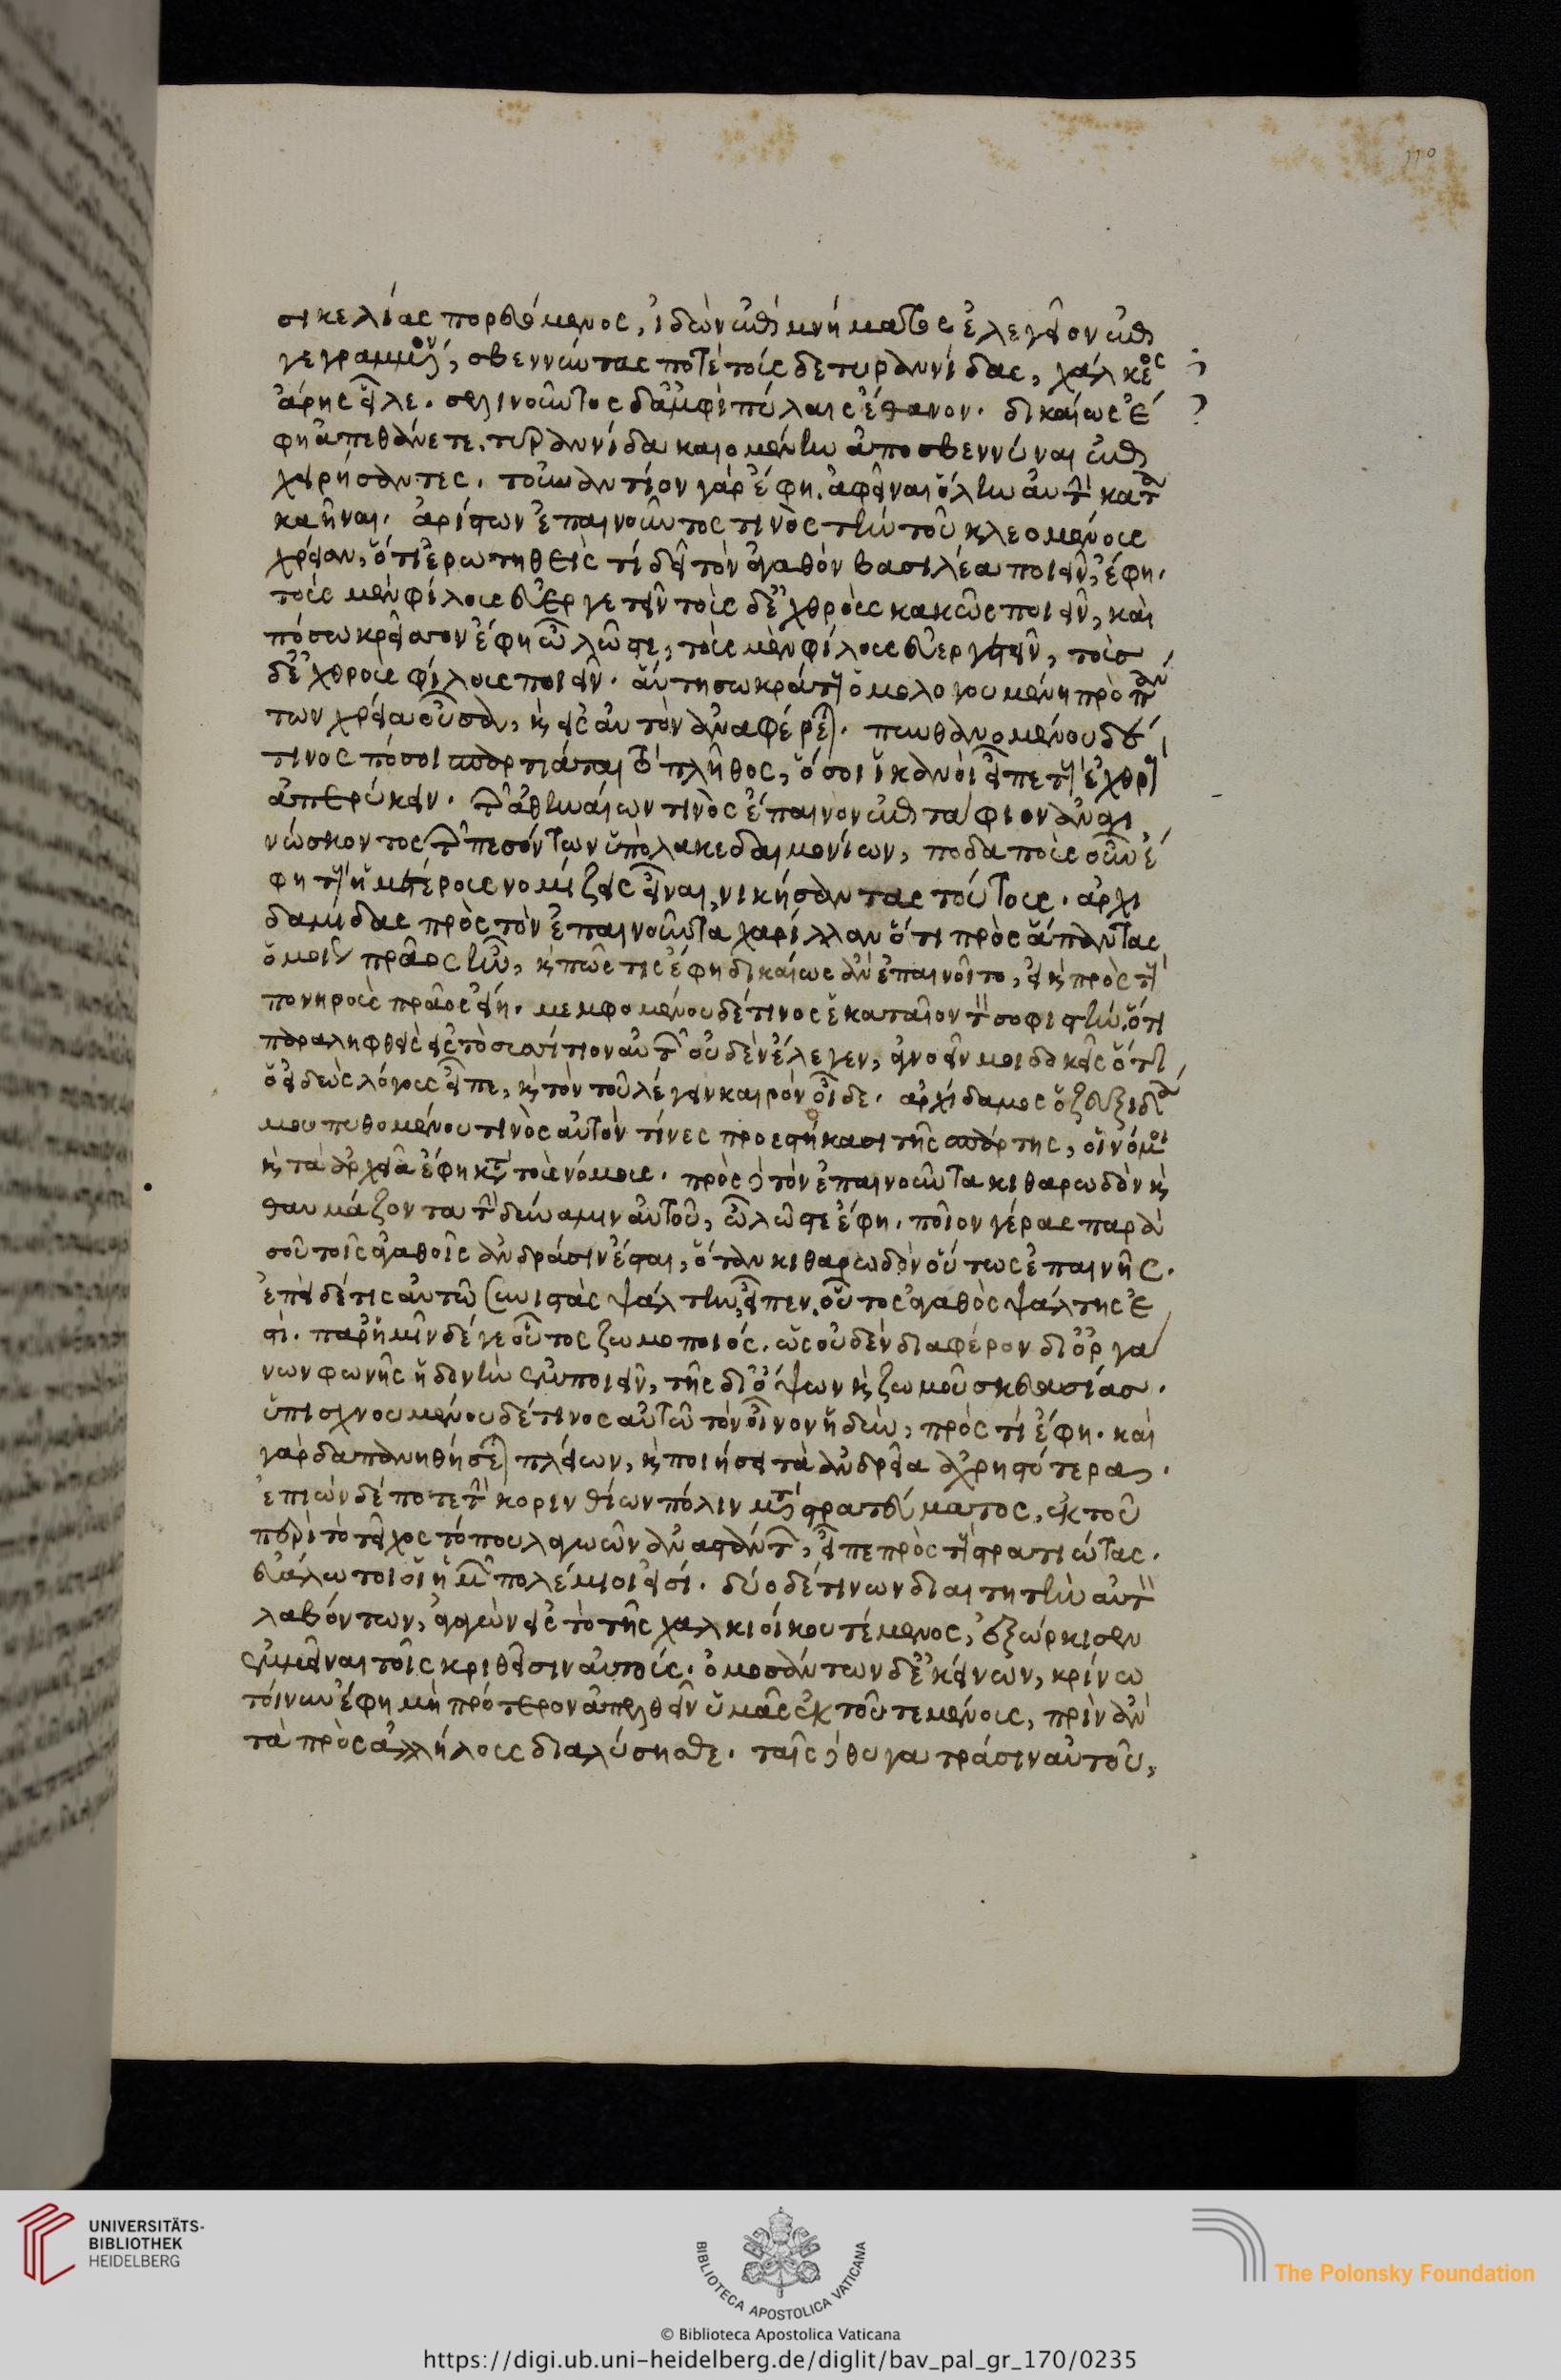 110
σικελίας πορευόμενος, ἰδὼν ἐπὶ μνήματος ἐλεγεῖον ἐπι
γεγραμμένον, σβεννύντας ποτὲ τούσδε τυραννίδας, χάλκεος
ἄρης εἷλε. σελινοῦντος δ' ἀμφὶ πύλαις ἔθανον. δικαίως ἔ
φη ἀπεθάνετε, τυραννίδα καιομένην ἀποσβεννύναι ἐπι
χειρήσαντες. τοὐναντίον γὰρ ἔφη. ἀφεῖναι ὅλην αὐτὴν κατα
καῆναι. ἀρίστων ἐπαινοῦντός τινος τὴν τοῦ κλεομένους
χρείαν, ὅτι ἐρωτηθεὶς τί δεῖ τὸν ἀγαθὸν βασιλέα ποιεῖν, ἔφη.
τοὺς μὲν φίλους εὐεργετεῖν τοὺς δ' ἐχθροὺς κακῶς ποιεῖν, καὶ
πόσω κρεῖσσον ἔφη ὦ λῶστε, τοὺς μὲν φίλους εὐεργετεῖν, τοὺς
δ' ἐχθροὺς φίλους ποιεῖν. αὕτη σωκράτους ὁμολογουμένη πρὸς πάν
των χρεία οὖσα, καὶ εἰς αὐτὸν ἀναφέρεται. πυνθανομένου δέ
τινος πόσοι σπαρτιάται τὸ πλῆθος, ὅσοι ἱκανοὶ εἶπε τοὺς ἐχθροὺς
ἀπερύκειν. τῶν ἀθηναίων τινὸς ἔπαινον ἐπιτάφιον ἀναγι
νώσκοντος τῶν πεσόντων ὑπὸ λακεδαιμονίων, ποδαποὺς οὖν ἔ
φη τοὺς ἡμετέρους νομίζεις εἶναι, νικήσαντας τούτους. ἀρχι
δαμίδας πρὸς τὸν ἐπαινοῦντα χαρίλλαν ὅτι πρὸς ἅπαντας
ὁμοίως πρᾶος ἦν, καὶ πῶς τις ἔφη δικαίως ἂν ἐπαινοῖτο, εἰ καὶ πρὸς τοὺς
πονηροὺς πρᾶος εἴη. μεμφομένου δέ τινος ἑκαταῖον τὸν σοφιστὴν, ὅτι
παραληφθεὶς εἰς τὸ συσσίτιον αὐτῶν οὐδὲν ἔλεγεν, ἀγνοεῖν μοι δοκεῖς ὅτι
ὁ εἰδὼς λόγους εἶπε, καὶ τὸν τοῦ λέγειν καιρὸν οἶδε. ἀρχίδαμος ὁ ζευξιδά
μου πυθομένου τινὸς αὐτὸν τίνες προεστήκασι τῆς σπάρτης, οἱ νόμοι
καὶ τὰ ἀρχεῖα ἔφη κατὰ τοὺς νόμους. πρὸς δὲ τὸν ἐπαινοῦντα κιθαρωδὸν καὶ
θαυμάζοντα τὴν δύναμιν αὐτοῦ, ὦ λῶστε ἔφη. ποῖον γέρας παρὰ
σοῦ τοῖς ἀγαθοῖς ἀνδράσιν ἔσται, ὅταν κιθαρωδὸν οὕτως ἐπαινῇς.
ἐπεὶ δέ τις αὐτῶ συνιστὰς ψάλτην, εἶπεν. οὗτος ἀγαθὸς ψάλτης ἐ
στί. παρ' ἡμῖν δέ γε οὗτος ζωμοποιός. ὡς οὐδὲν διαφέρον δι' ὀργά
νων φωνῆς ἡδονὴν ἐμποιεῖν, τῆς δι' ὄψων καὶ ζωμοῦ σκευασίας.
ὑπισχνουμένου δέ τινος αὐτῶ τὸν οἶνον ἡδὺν, πρὸς τί ἔφη. καὶ
γὰρ δαπανηθήσεται πλείων, καὶ ποιήσει τὰ ἀνδρεῖα ἀχρηστότερα.
ἐπιὼν δέ ποτε τὴν κορινθίων πόλιν μετὰ στρατεύματος, ἐκ τοῦ
περὶ τὸ τεῖχος τόπου λαγωῶν ἀναστάντων, εἶπε πρὸς τοὺς στρατιώτας.
εὐάλωτοι οἱ ἡμῖν πολέμιοι εἰσί. δύο δέ τινων διαιτητὴν αὐτὸν
λαβόντων, ἀγαγὼν εἰς τὸ τῆς χαλκιοίκου τέμενος, ἐξώρκισεν
ἐμμεῖναι τοῖς κριθεῖσιν αὐτούς. ὀμοσάντων δ' ἐκείνων, κρίνω
τοίνυν ἔφη μὴ πρότερον ἀπελθεῖν ὑμᾶς ἐκ τοῦ τεμένους, πρὶν ἂν
τὰ πρὸς ἀλλήλους διαλύσησθε. ταῖς δὲ θυγατράσιν αὐτοῦ,
UNIVERSITÄTS-
BIBLIOTHEK
HEIDELBERG
BIBLIOTECA APOSTOLICA VATICANA
© Biblioteca Apostolica Vaticana
The Polonsky Foundation
https://digi.ub.uni-heidelberg.de/diglit/bav_pal_gr_170/0235